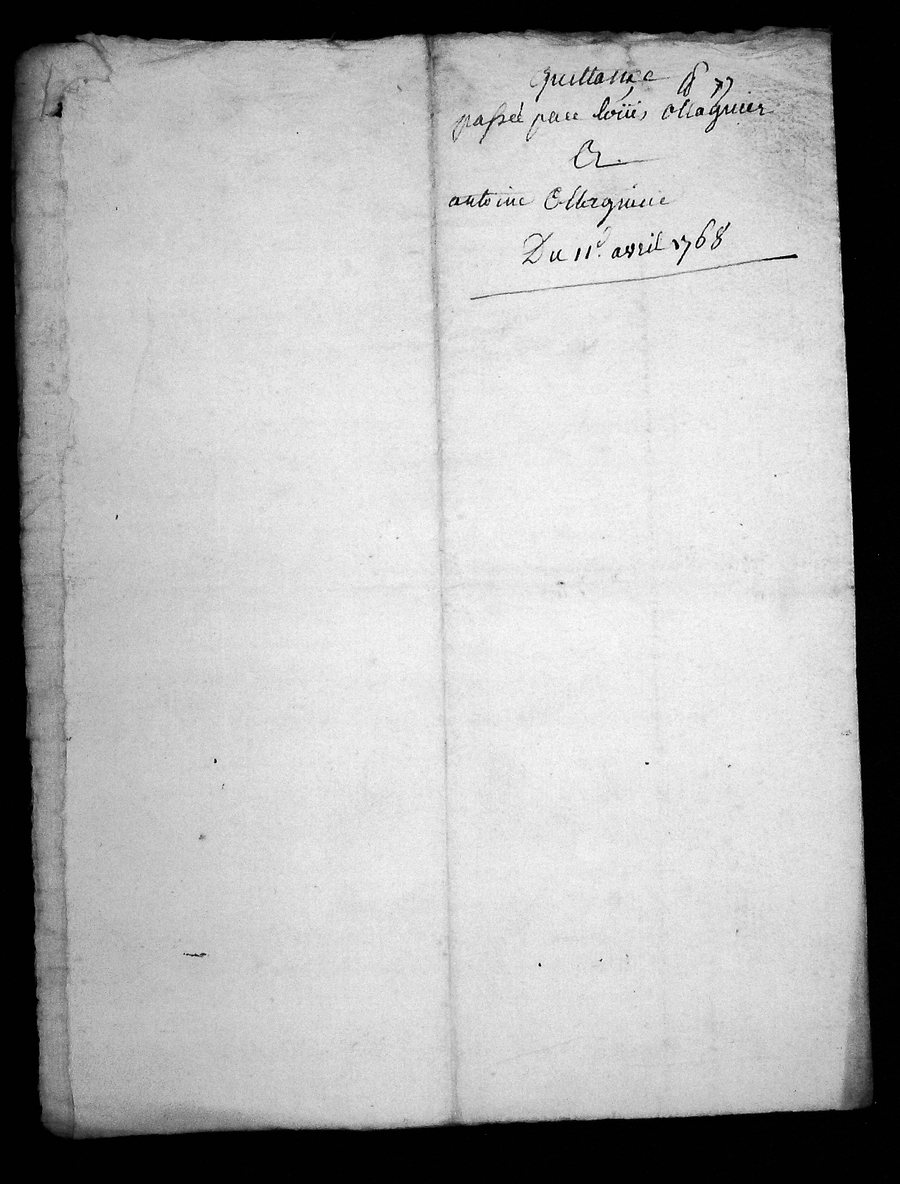 quittance
passée par loüis ollagnier
A
antoine Ollagniere
Du 11e avril 1768